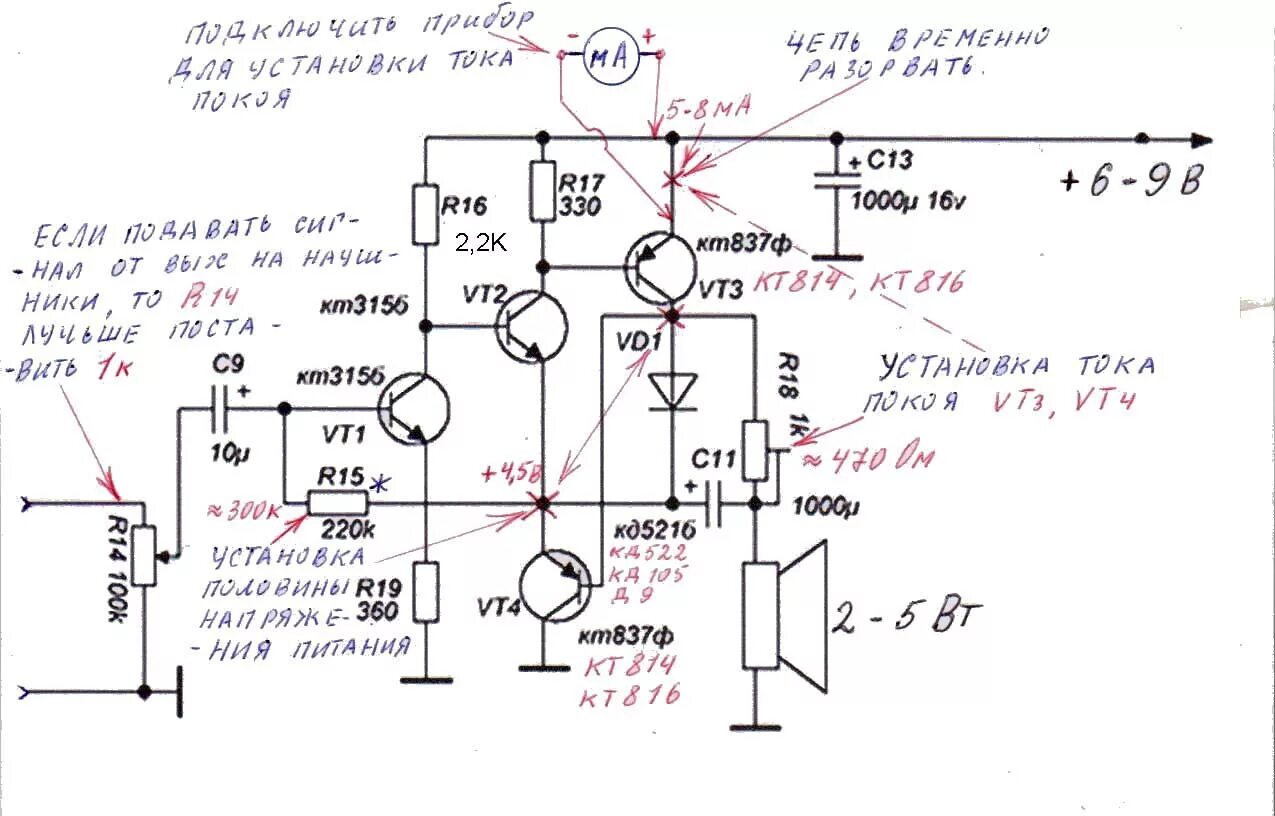 ПОДКЛЮЧИТЬ ПРИБОР
ДЛЯ УСТАНОВКИ ТОКА
ПОКОЯ
- мА +
ЦЕПЬ ВРЕМЕННО
РАЗОРВАТЬ.
5-8мА
+ 6 - 9 В
+ C13
1000µ 16v
R17
330
R16
2,2K
кт837ф
VT3
КТ814, КТ816
ЕСЛИ ПОДАВАТЬ СИГ-
-НАЛ ОТ ВЫХ НА НАУШ-
НИКИ, ТО R14
ЛУЧЬШЕ ПОСТА-
-ВИТЬ 1к
кт315б
VT2
VD1
C9
+
10µ
кт315б
VT1
R18 1k
УСТАНОВКА ТОКА
ПОКОЯ VT3, VT4
≈470 Ом
R15 *
220k
≈300к
+4,5в
C11
+
1000µ
R14 100k
УСТАНОВКА
ПОЛОВИНЫ
НАПРЯЖЕ-
-НИЯ ПИТАНИЯ
R19
360
VT4
кд521б
КД522
КД105
Д9
кт837ф
КТ814
КТ816
2 - 5 Вт